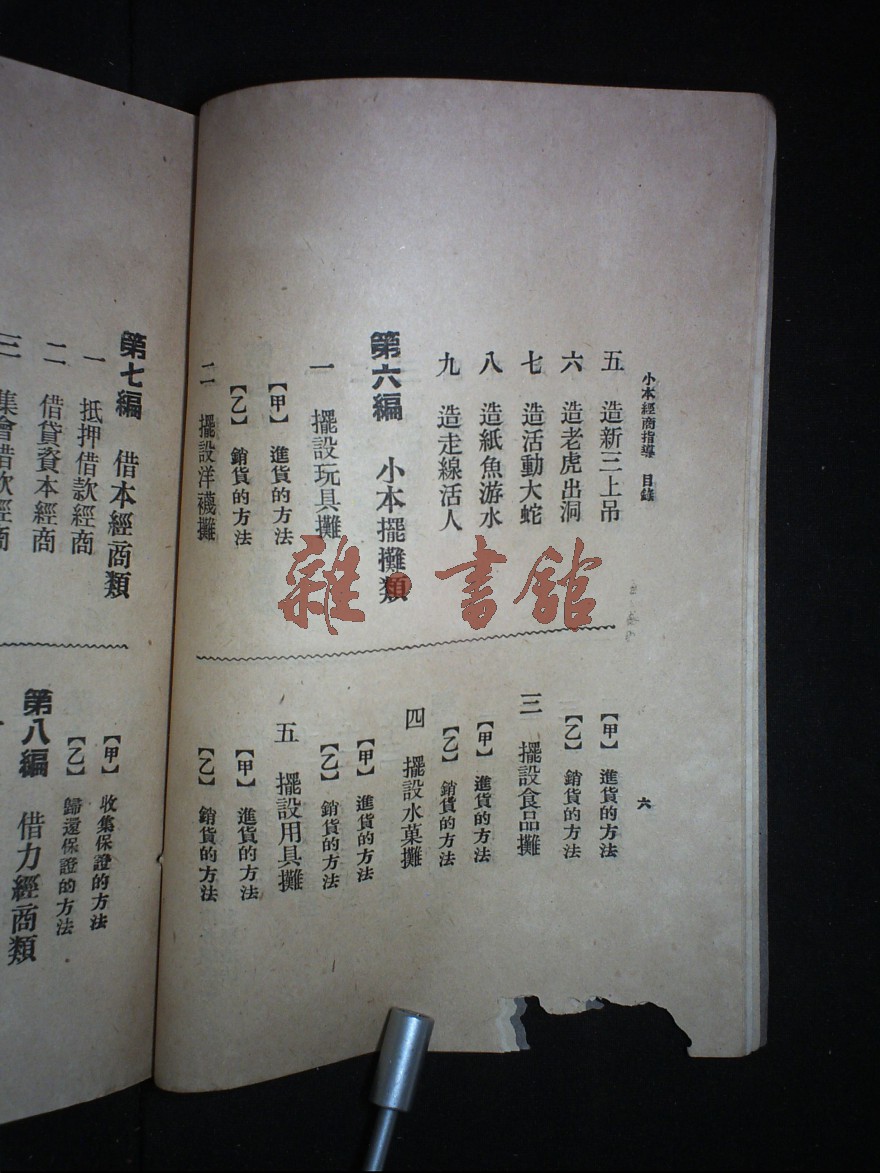 小本經商指導 目錄
六
五 造新三上吊
六 造老虎出洞
七 造活動大蛇
八 造紙魚游水
九 造走線活人
第六編 小本擺攤類
一 擺設玩具攤
【甲】進貨的方法
【乙】銷貨的方法
二 擺設洋襪攤
【甲】進貨的方法
【乙】銷貨的方法
三 擺設食品攤
【甲】進貨的方法
【乙】銷貨的方法
四 擺設水菓攤
【甲】進貨的方法
【乙】銷貨的方法
五 擺設用具攤
【甲】進貨的方法
【乙】銷貨的方法
第七編 借本經商類
一 抵押借款經商
二 借貸資本經商
三 集會借款經商
【甲】收集保證的方法
【乙】歸還保證的方法
第八編 借力經商類
雜·書館